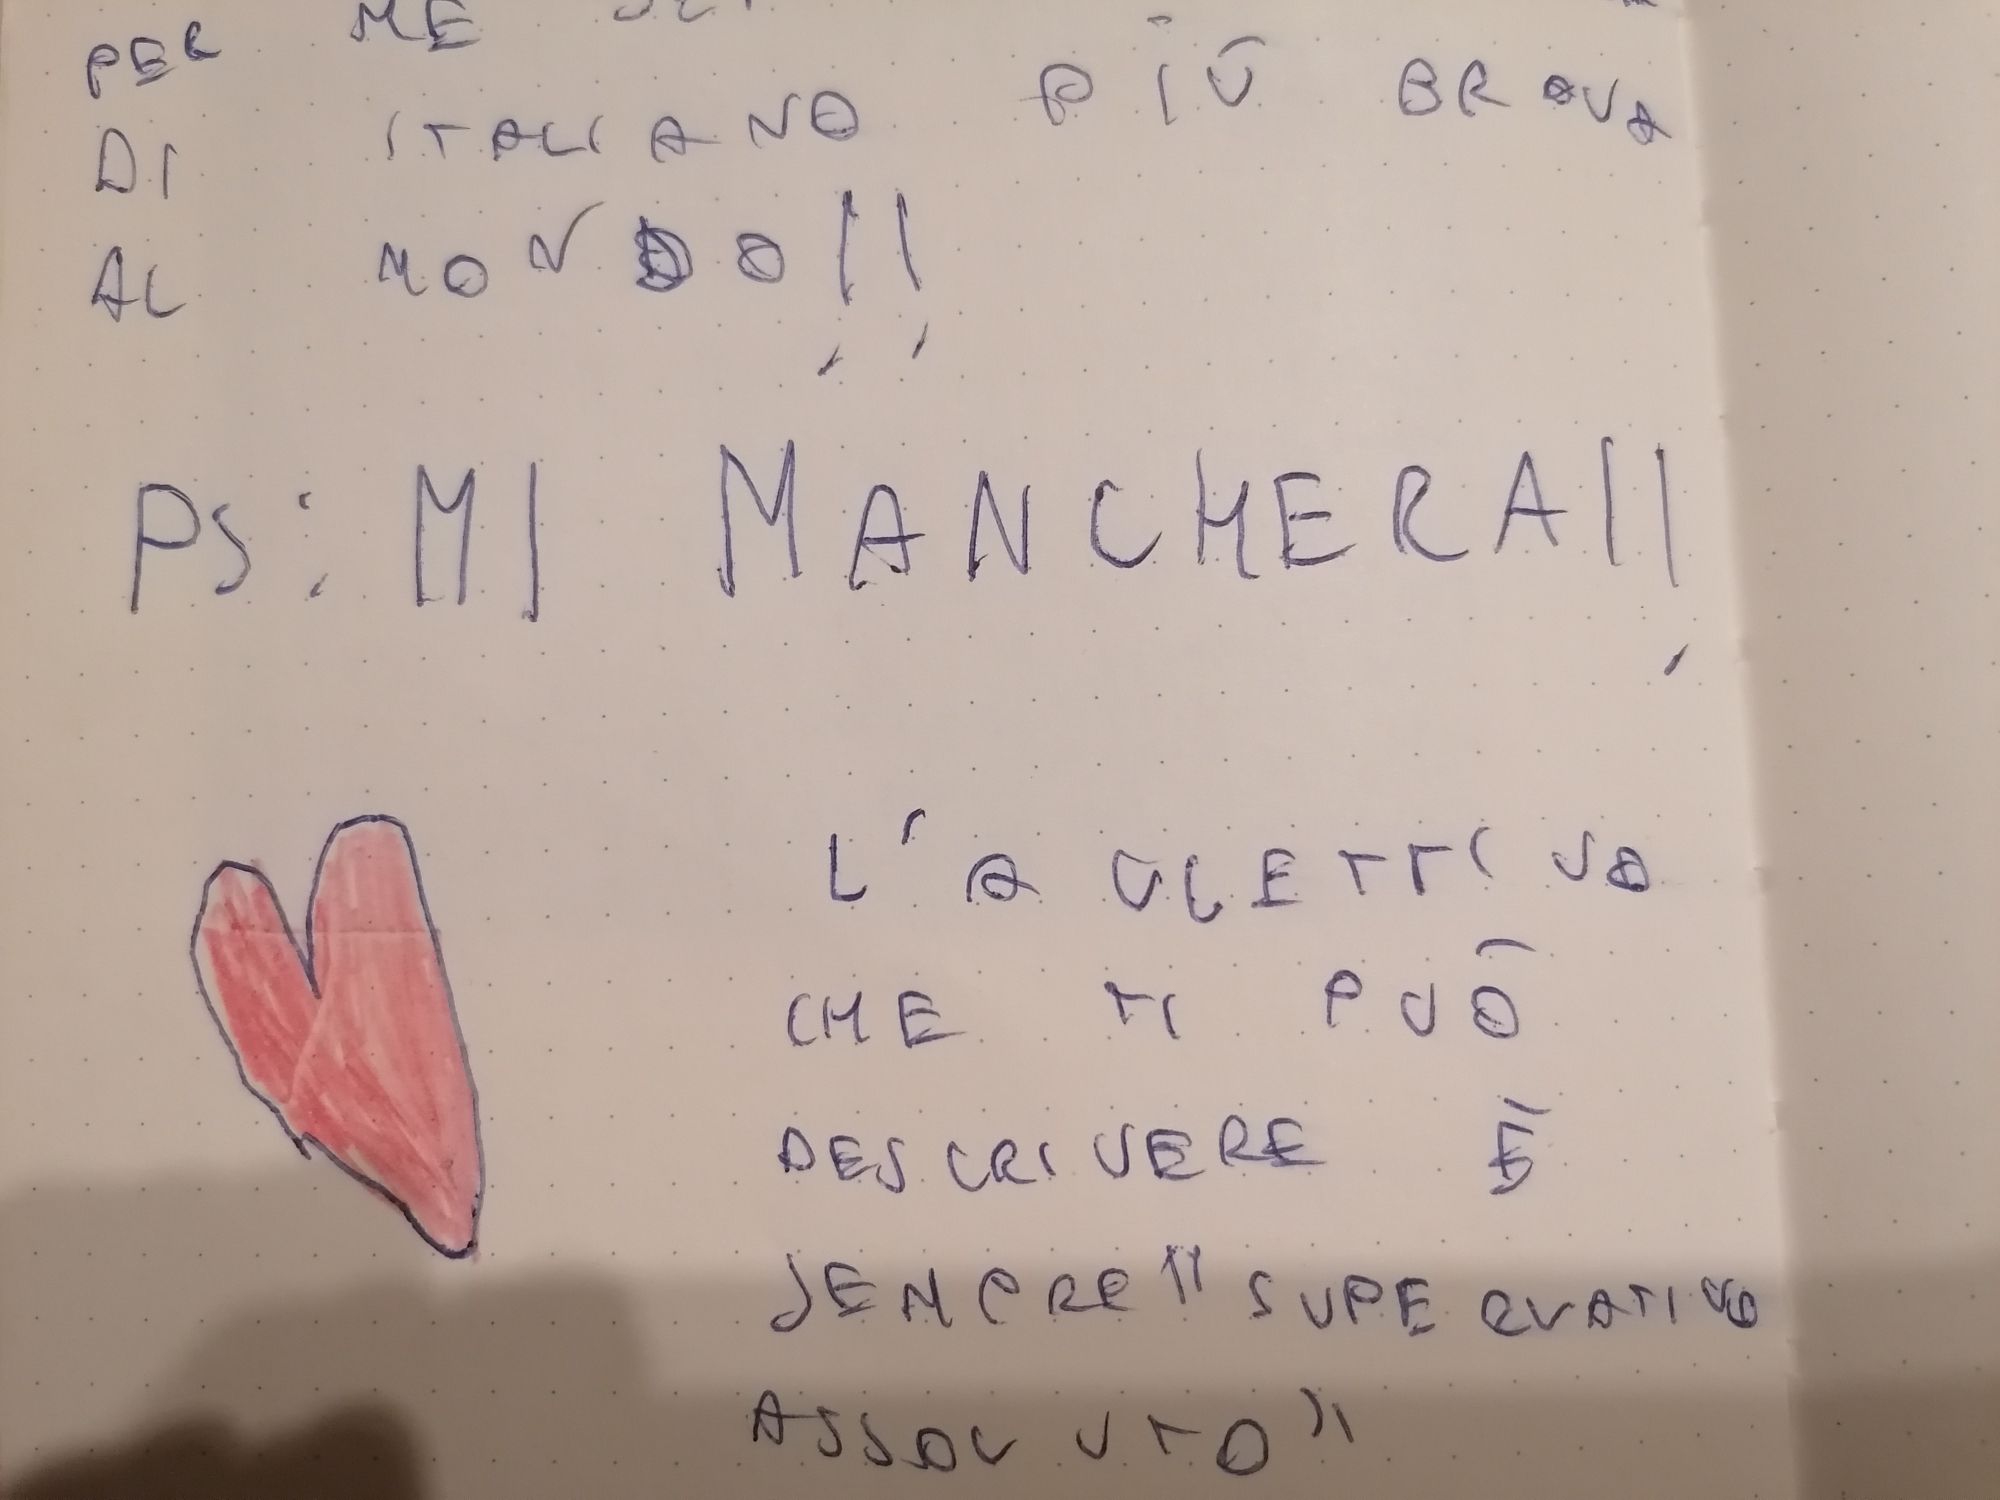 PER ME
DI ITALIANO PIÙ BRAVA
AL MONDO!!
PS: MI MANCHERAI!
L'AULETTIVO
CHE TI PUÒ
DESCRIVERE È
SEMPRE "SUPERVATIVO
ASSOLUTO"